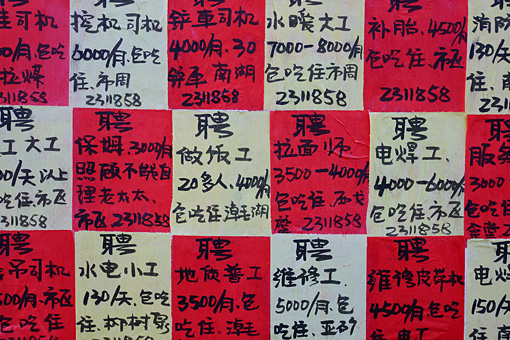 挖机司机
6000/月.包吃
住.市周
2311858
4000/月.30
南湖
2311858
水暖大工
7000-8000/月
包吃住市周
2311858
补胎.4500/月
包吃住.市区
2311858
消防
130/天
住.
231
司机
00/月.包吃
拉煤
2311858
聘
工大工
00/天以上
吃住.市区
2311858
聘
保姆.3000/月
照顾不能自
理老太太.
市区.2311858
聘
做饭工
20多人.4000/月
包吃住.淖毛湖
聘
拉面师
3500-4000/月
包吃住.
2311858
聘
电焊工.
4000-6000/月
包吃住.市区
2311858
聘
服务
3000
包吃住
聘
司机
500/月.市区
包吃住
聘
水电小工
130/天.包吃
住.柳树泉
2311858
聘
地质普工
3500/月.包
吃住.淖毛
聘
维修工.
5000/月.包
吃住.
聘
维修皮带机
4500/月.包吃
住.电工
聘
电焊
150/天
住.